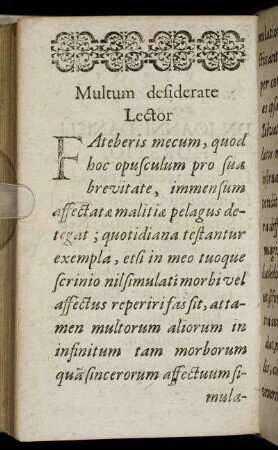 Multum desiderate
Lector
FAteberis mecum, quod
hoc opusculum pro sua
brevitate, immensum
affectatæ malitiæ pelagus de-
tegat; quotidiana testantur
exempla, etsi in meo tuoque
scrinio nil simulati morbi vel
affectus reperiri fas sit, atta-
men multorum aliorum in
infinitum tam morborum
quã sincerorum affectuum si-
mula-